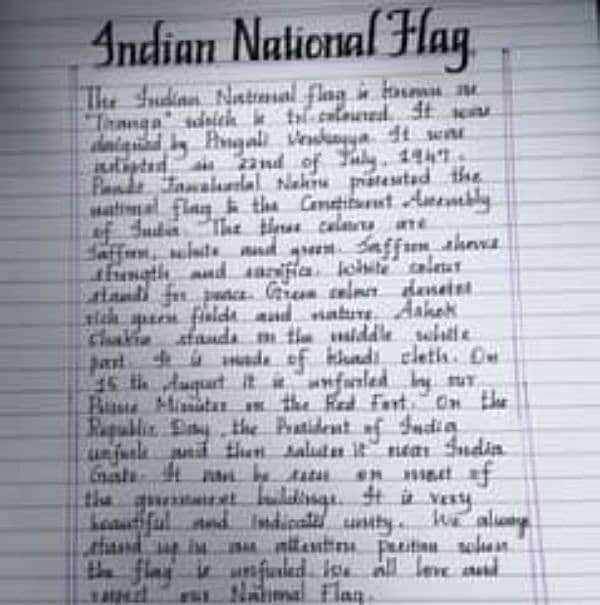 Indian National Flag.
The Indian National flag is known as
"Tiranga" which is tri coloured. It was
designed by Pingali Venkayya. It was
adopted on 22nd of July, 1947.
Pandit Jawaharlal Nehru presented the
national flag to the Constituent Assembly
of India. The three colours are
Saffron, white and green. Saffron shows
strength and sacrifice. White colour
stands for peace. Green colour denotes
rich green fields and nature. Ashok
Chakra stands on the middle white
part. It is made of khadi cloth. On
15 th August it is unfurled by our
Prime Minister on the Red Fort. On the
Republic Day, the President of India
unfurls and then salutes it near India
Gate. It can be seen on most of
the government buildings. It is very
beautiful and indicates unity. We always
stand up in an attention position when
the flag is unfurled. We all love and
respect our National Flag.